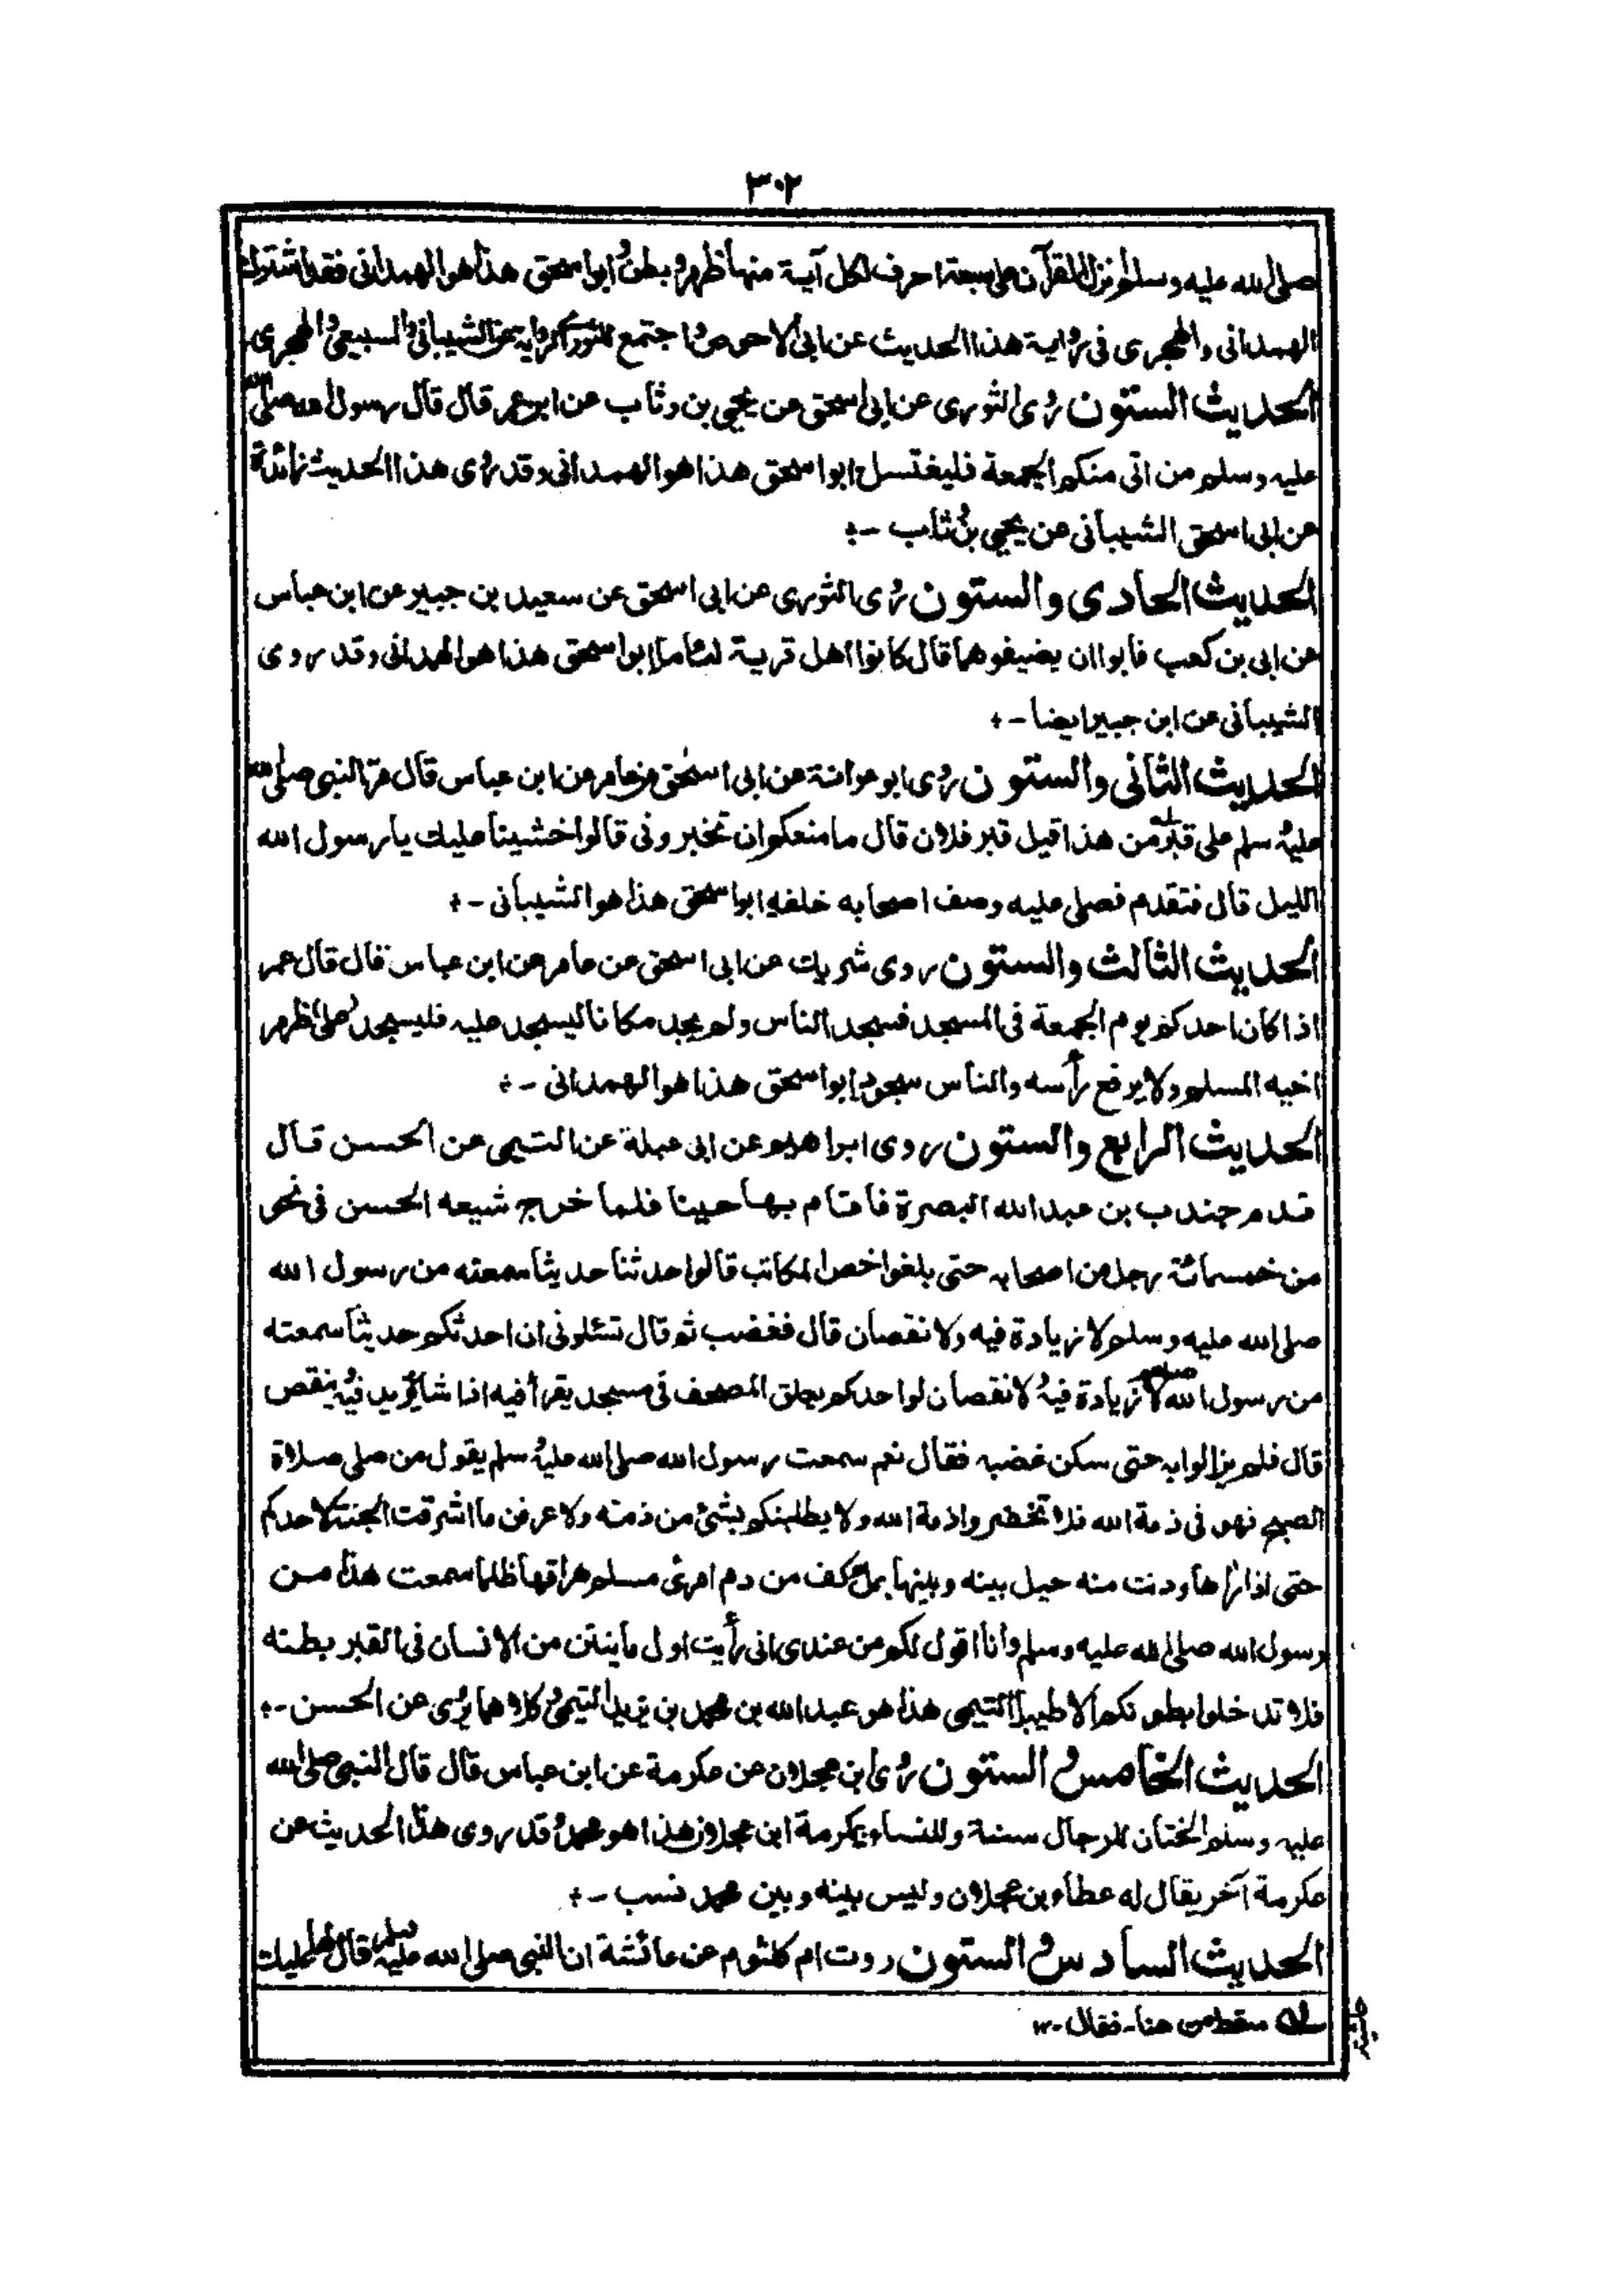 ٣٠٢
صلى الله عليه وسلم نزل القرآن على سبعة احرف لكل آية منها ظهر و بطن ابو اسحق هذا هو الهمدانى فقد اشترك
الهمدانى والهجرى فى رواية هذا الحديث عن ابى الاحوص واجتمع للثورى الرواية عن الشيبانى والسبيعى والهجرى
الحديث الستون روى الثورى عن ابى اسحق عن يحيى بن وثاب عن ابن عمر قال قال رسول الله صلى الله
عليه وسلم من اتى منكم الجمعة فليغتسل ابو اسحق هذا هو الهمدانى وقد روى هذا الحديث زائدة
عن ابى اسحق الشيبانى عن يحيى بن وثاب -؞
الحديث الحادى والستون روى الثورى عن ابى اسحق عن سعيد بن جبير عن ابن عباس
عن ابى بن كعب فابوا ان يضيفوهما قال كانوا اهل قرية لئاما ابو اسحق هذا هو الهمدانى وقد روى
الشيبانى عن ابن جبير ايضا -؞
الحديث الثانى والستون روى ابو عوانة عن ابى اسحق عن عامر عن ابن عباس قال مر النبى صلى الله
عليه وسلم على قبر من هذا قيل قبر فلان قال ما منعكم ان تخبرونى قالوا خشينا عليك يا رسول الله
الليل قال فتقدم فصلى عليه وصف اصحابه خلفه ابو اسحق هذا هو الشيبانى -؞
الحديث الثالث والستون روى شريك عن ابى اسحق عن عامر عن ابن عباس قال قال عمر
اذا كان احدكم يوم الجمعة فى المسجد فسجد الناس ولم يجد مكانا ليسجد عليه فليسجد على ظهر
اخيه المسلم ولا يرفع رأسه والناس سجود ابو اسحق هذا هو الهمدانى -؞
الحديث الرابع والستون روى ابراهيم عن ابى عبلة عن التيمى عن الحسن قال
قدم جندب بن عبد الله البصرة فاقام بها حينا فلما خرج شيعه الحسن فى نحو
من خمسمائة رجل من اصحابه حتى بلغوا خص المكاتب قالوا حدثنا حديثا سمعته من رسول الله
صلى الله عليه وسلم لا زيادة فيه ولا نقصان قال فغضب ثم قال تسئلونى ان احدثكم حديثا سمعته
من رسول الله صلعم لا زيادة فيه ولا نقصان لو احدكم يعلق المصحف فى مسجد يقرأ فيه اذا شاء يزيد فيه وينقص
قال فلم يزالوا به حتى سكن غضبه فقال نعم سمعت رسول الله صلى الله عليه وسلم يقول من صلى صلاة
الصبح فهو فى ذمة الله فلا تخفروا ذمة الله ولا يطلبنكم بشئ من ذمته ولا عرفن ما اشرقت الجنة لاحدكم
حتى اذا رآها ودنت منه حيل بينه وبينها بملأ كف من دم امرئ مسلم هراقها ظلما سمعت هذا من
رسول الله صلى الله عليه وسلم وانا اقول لكم من عندى انى رأيت اول ما ينتن من الانسان فى القبر بطنه
فلا تدخلوا بطونكم الا طيبا التيمى هذا هو عبد الله بن محمد بن يزيد التيمى وكلاهما يروى عن الحسن -؞
الحديث الخامس والستون روى ابن عجلان عن عكرمة عن ابن عباس قال قال النبى صلى الله
عليه وسلم الختان للرجال سنة وللنساء مكرمة ابن عجلان هذا هو محمد وقد روى هذا الحديث عن
عكرمة آخر يقال له عطاء بن عجلان وليس بينه وبين محمد نسب -؞
الحديث السادس والستون روت ام كلثوم عن عائشة ان النبى صلى الله عليه وسلم قال لها عليك
له سقط من هنا - فقال - ١٢